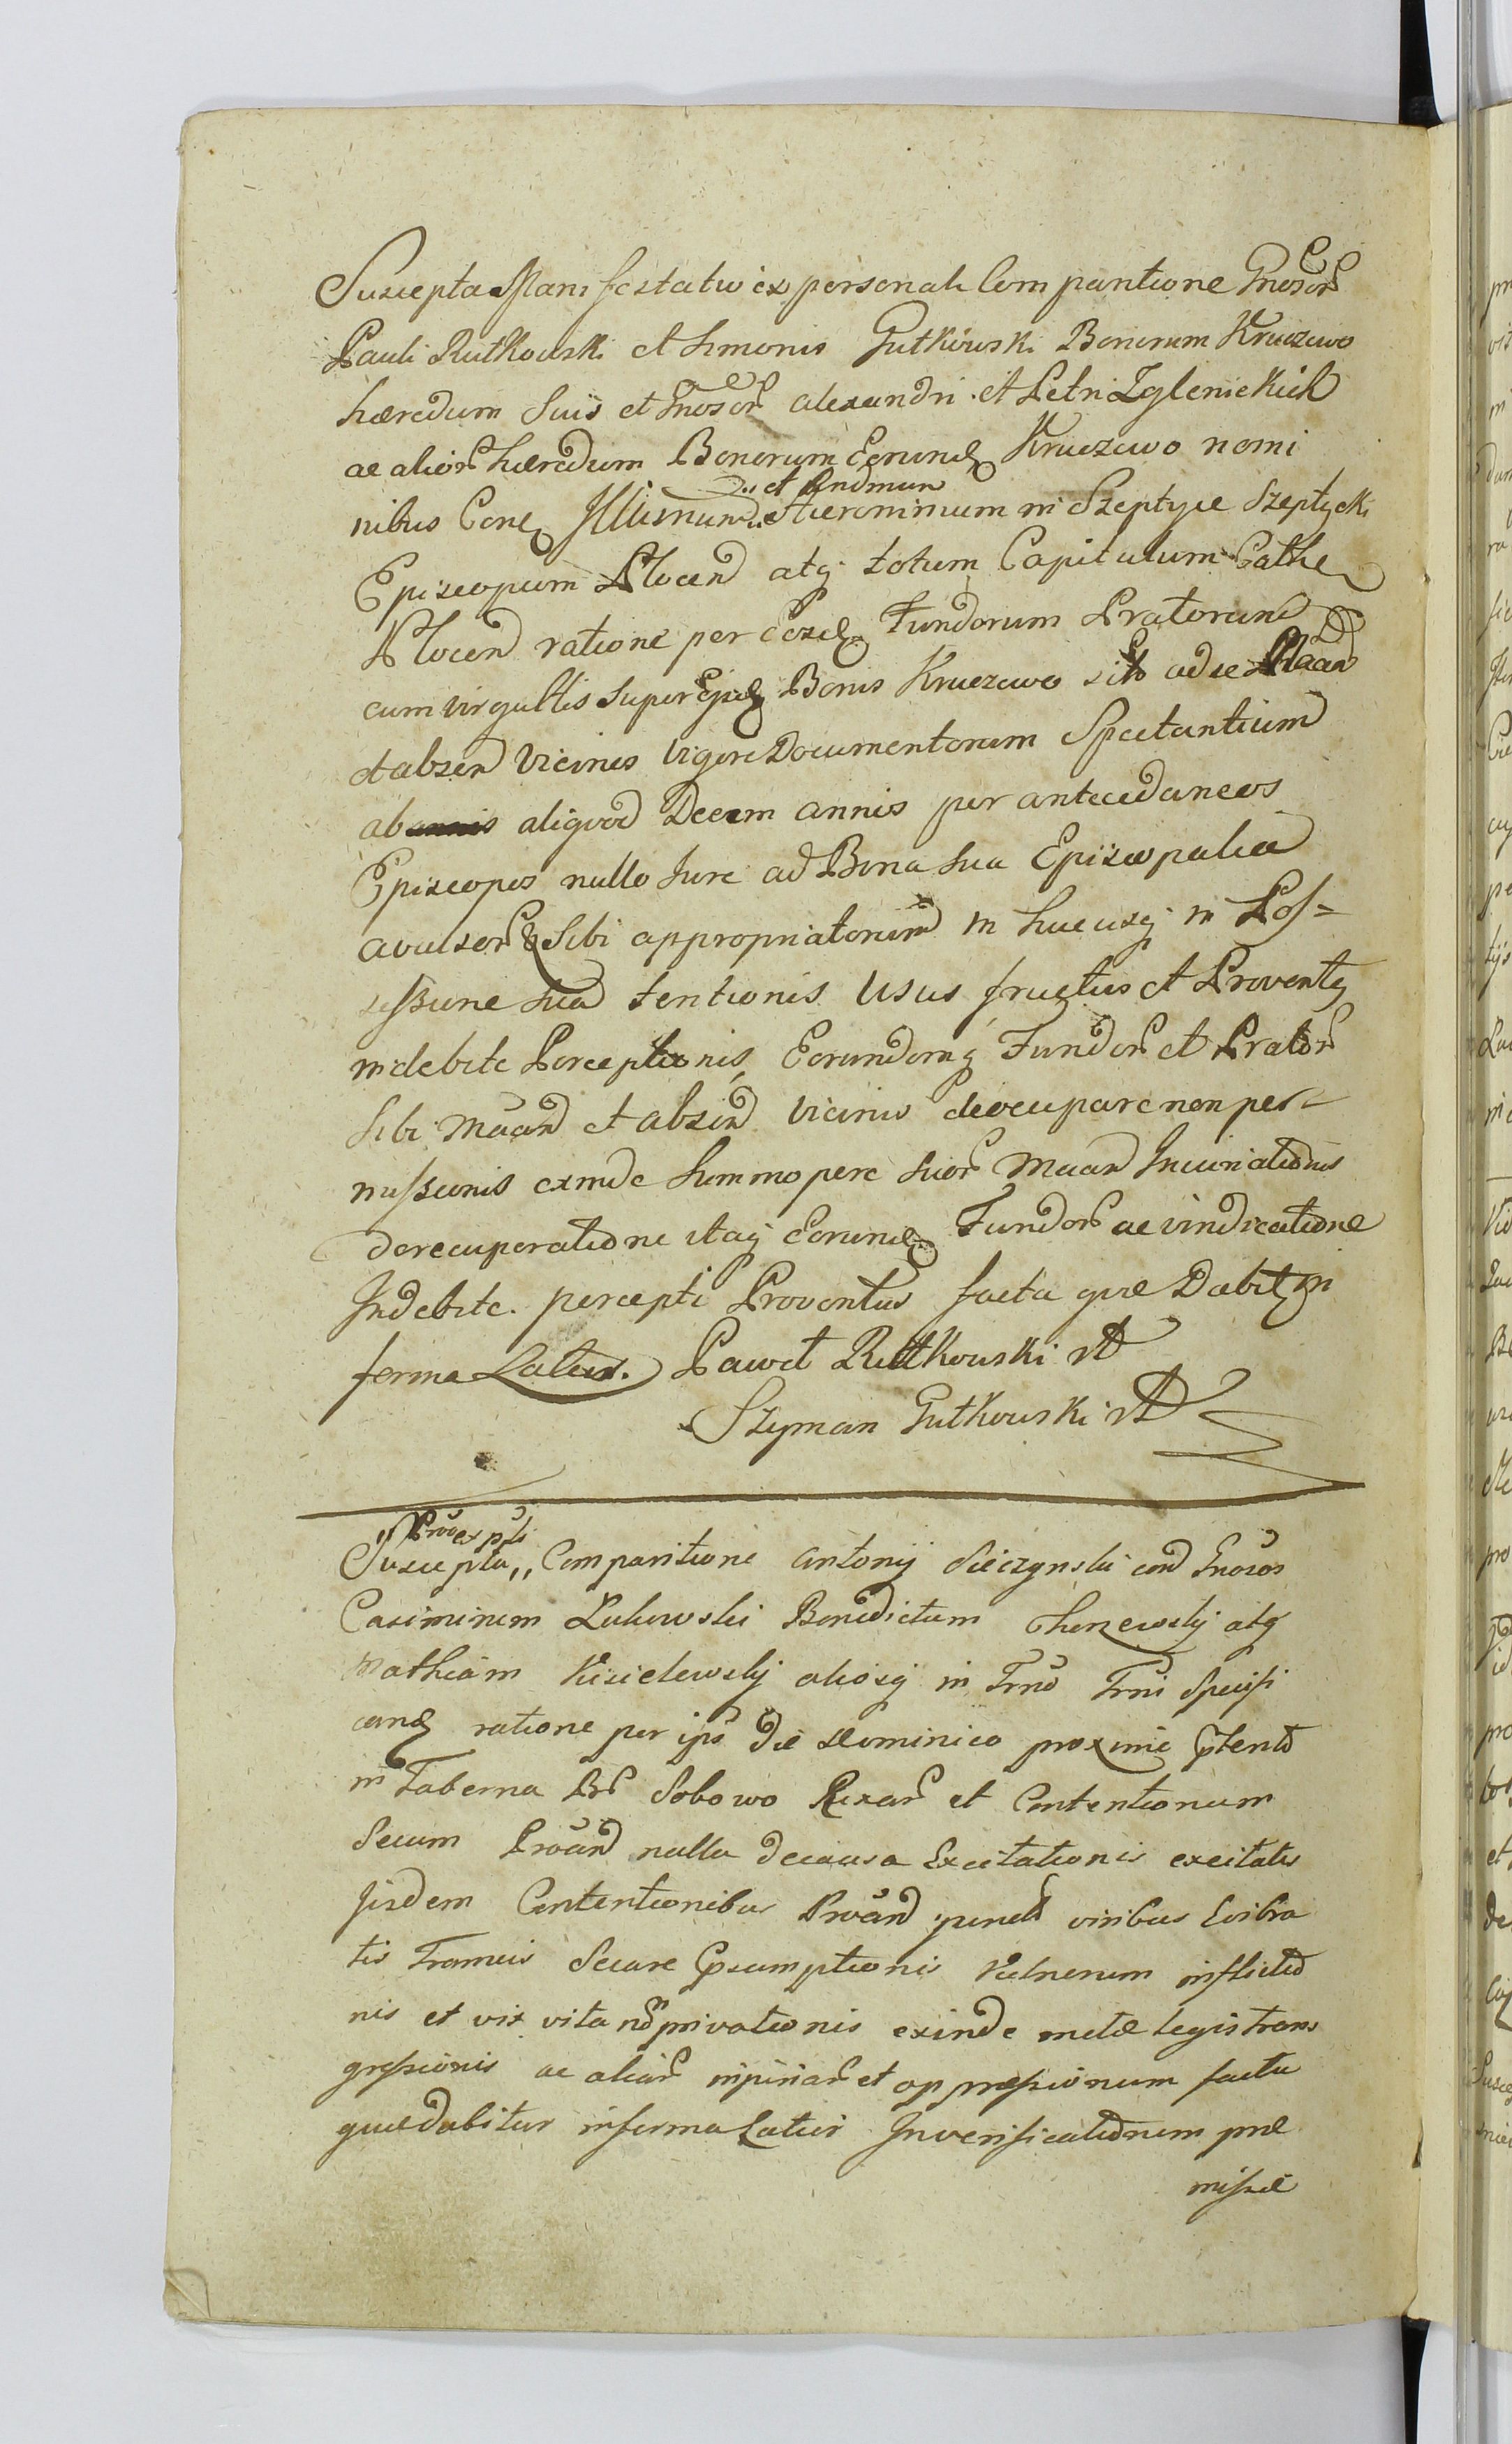 Suscepta Manifestatio ex personali Comparitione Gnosor
Pauli Rutkowski et Simonis Gutkowski Bonorum Kruczewo
hæredum Suis et Gnosor Alexandri et Petri Zglenickich
ac alior hæredum Bonorum Eorund Kruczewo nomi
et Rndmum
nibus Con Illusmum Hieronimum in Szeptyce Szeptycki
Episcopum Plocen atq totum Capitulum Cathe
Plocen ratione per Eosd Fundorum Pratorum
cum virgultis super Ejusd Bonis Kruczewo sit ad se
et absen Vicinos vigore Documentorum Spectantium
ab aliquod Decem annis per antecedaneos
Episcopos nullo Jure ad Bona sua Episcopalia
avulsor Sibi appropriatorum in hucusq in Pos=
sessione sua tentionis Usus fructus et Provent
indebite Perceptionis, Eorundemq Fundor et Prator
Sibi Maan et absen Vicinis deocupare non per
missionis exinde Summopere suor Maan Injuriationis
de recuperatione itaq Eorund Fundor ac vindicatione
Indebite percepti Proventus facta quæ Dabit in
forma Latior. Paweł Rutkowski
Szyman Gutkowski
Suscepta,, Comparitione Antonij Sieczynski con Gnosos
Casimirum Lukowski Benedictum atq
Mathiam Kisielewskj aliosq in Trno Trni Specifi
cand ratione per ips die Dominico proxime
in Taberna Sobowo Rixar et Contentionum
Secum nulla de causa Excitationis excitatis
Jisdem Contentionibus viribus Evibra
tis Frameis Secure Vulnerum inflictio
nis et vix vita privationis exinde metæ legis trans
gressionis ac aliar injuriar et oppressionum facta
quæ dabitur in forma Latiori In verificationem præ
missæ